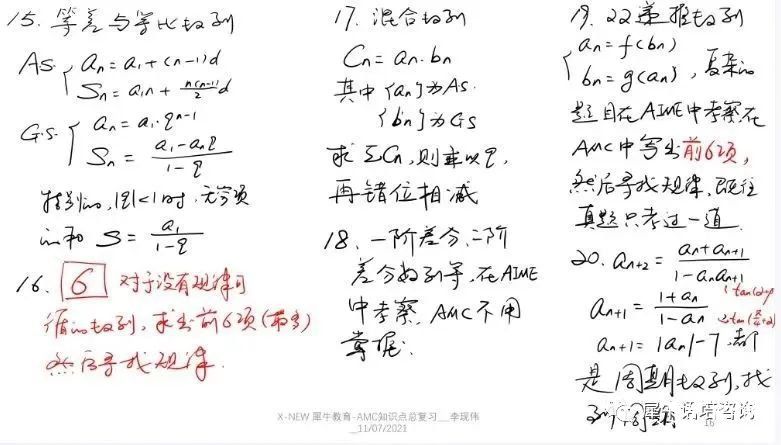 15. 等差与等比数列
A.S. { an = a1 + (n-1)d
Sn = a1n + n(n-1)/2 d
G.S. { an = a1·q^(n-1)
Sn = (a1 - anq)/(1-q)
特别的, |q|<1时, 无穷项
的和 S = a1/(1-q)
16. 6 对于没有规律可
循的数列, 求出前6项(最多)
然后寻找规律.
17. 混合数列
Cn = an·bn
其中 {an}为A.S.
{bn}为G.S
求ΣCn, 则乘以q,
再错位相减
18. 一阶差分, 二阶
差分数列等, 在AIME
中考察, AMC不用
掌握.
19. 22递推数列
{ an = f(bn)
bn = g(an) , 复杂的
题目在AIME中考察, 在
AMC中写出前6项,
然后寻找规律, 既往
真题只考过一道.
20. an+2 = (an + an+1)/(1 - an an+1)
an+1 = (1+an)/(1-an)
an+1 = |an| - 7, 都
是周期数列, 找
X-NEW 犀牛教育-AMC知识点总复习__李现伟
__11/07/2021
16